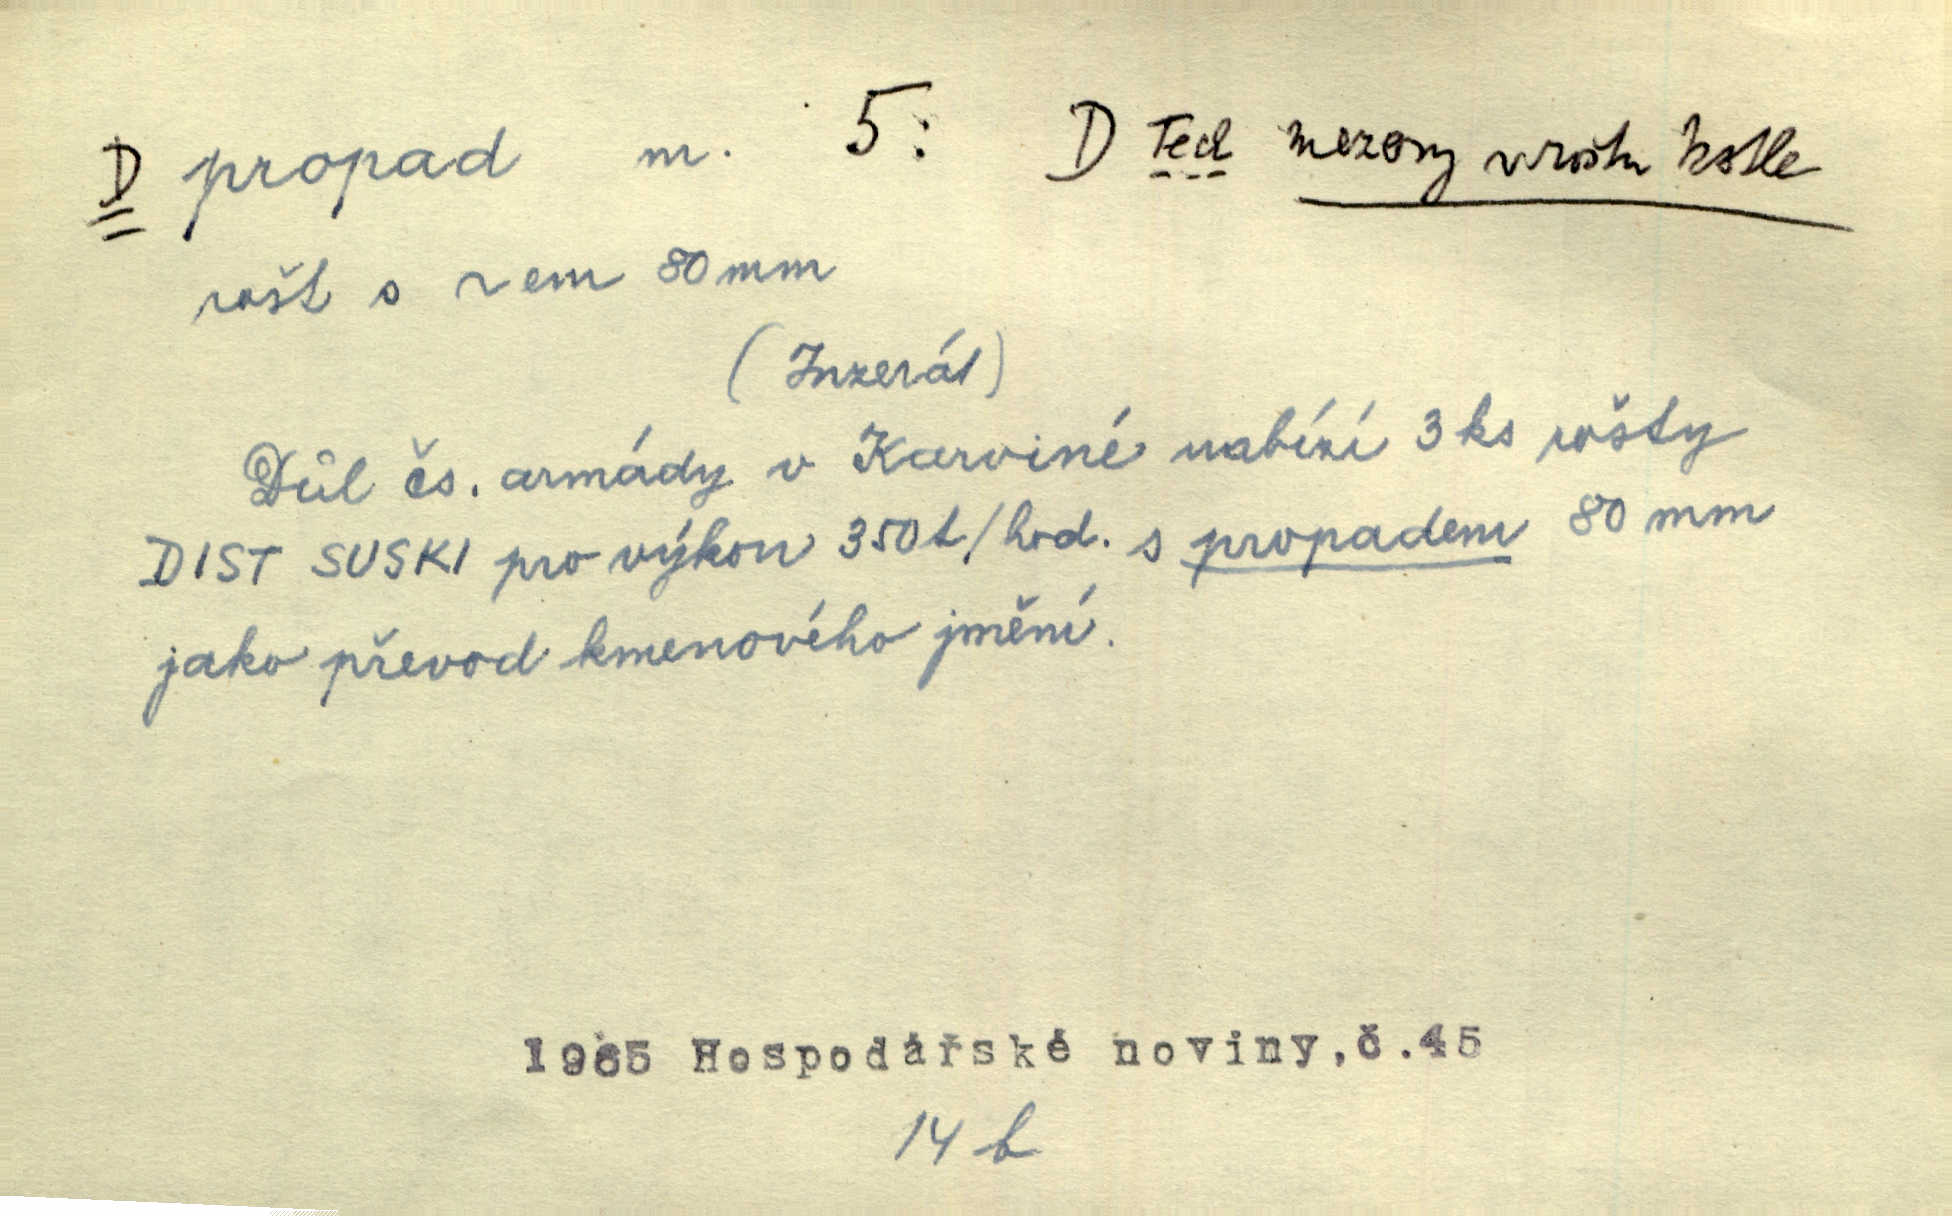 D propad m. 5: D Tech mezery v roštu kotle
rošt s ~em 80 mm
(Inzerát)
Důl čs. armády v Karviné nabízí 3 ks rošty
DIST SUSKI pro výkon 350 t/hod. s propadem 80 mm
jako převod kmenového jmění.
1965 Hospodářské noviny,č.45
14 b